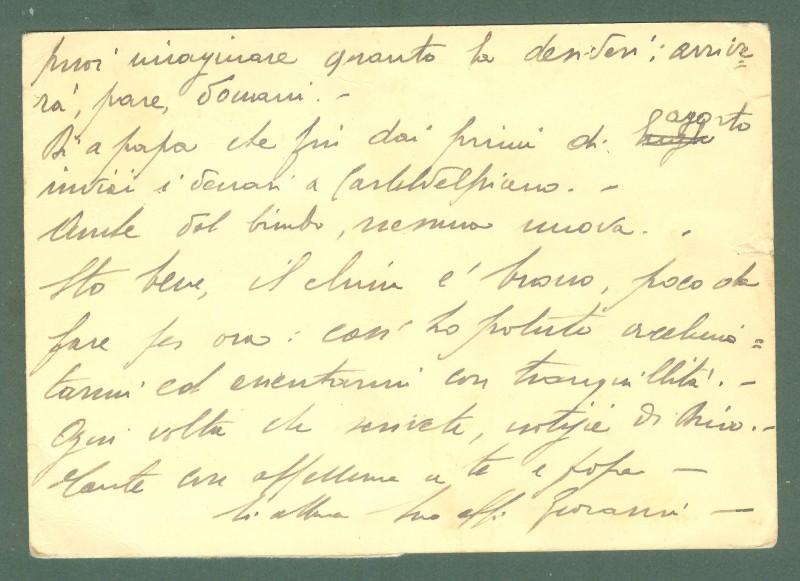 puoi imaginare quanto la desideri: arrive=
rà, pare, domani. -
Di a papà che fin dai primi di agosto
invii i denari a Casteldelpiano. -
Anche dal bimbo, nessuna nuova. -
Sto bene, il clima è buono, poco da
fare per ora: così ho potuto acclima=
tarmi ed orientarmi con tranquillità. -
Ogni volta che scrivete, notizie di
Tante cose affettuose a te e papà -
tuo aff. Giovanni -